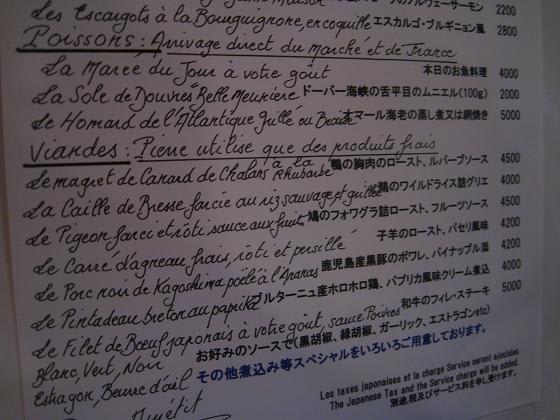 Maison サーモン 2200
Les Escargots à la Bourguignone, en coquille エスカルゴ・ブルギニョン風 2800
Poissons: Arrivage direct du Marché et de France
La Marée du Jour à votre goût 本日のお魚料理 4000
La Sole de Douvres Belle Meunière ドーバー海峡の舌平目のムニエル(100g) 2000
Le Homard de l'Atlantique Grillé ou Braisé オマール海老の蒸し煮又は網焼き 5000
Viandes: Pierre utilise que des produits frais
Le magret de Canard de Chalans à la Rhubarbe 鴨の胸肉のロースト、ルバーブソース 4500
La Caille de Bresse farcie au riz sauvage et grillée 鶉のワイルドライス詰グリエ 4000
Le Pigeon farci et rôti sauce aux fruits 鳩のフォワグラ詰ロースト、フルーツソース 4500
Le Carré d'agneau frais, rôti et persillé 子羊のロースト、パセリ風味 4200
Le Porc noir de Kagoshima poêlé à l'Ananas 鹿児島産黒豚のポワレ、パイナップル添 4200
Le Pintadeau breton au paprika ブルターニュ産ホロホロ鶏、パプリカ風味クリーム煮込 4000
Le Filet de Bœuf japonais à votre goût, sauce Poivres 和牛のフィレ・ステーキ 5000
Blanc, Vert, Noir お好みのソースで(黒胡椒、緑胡椒、ガーリック、エストラゴンetc)
Estragon, Beurre d'ail その他煮込み等スペシャルをいろいろご用意しております。
Appétit
Les taxes japonaises et la charge Service seront ajoutées
The Japanese Tax and the Service charge will be added.
別途、税及びサービス料を申し受けます。